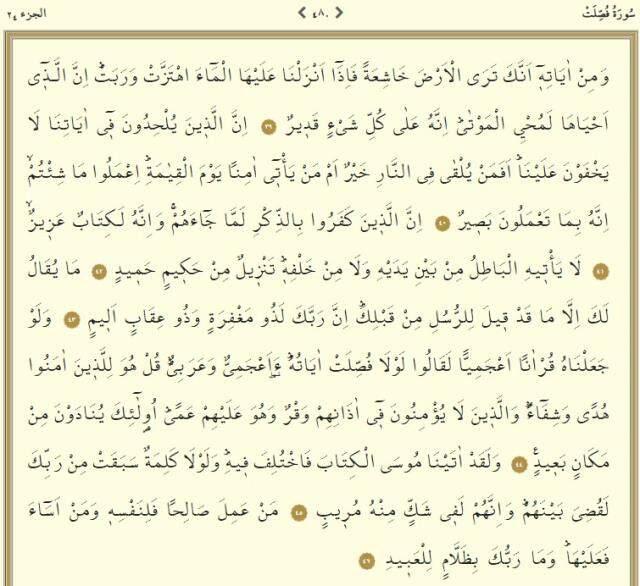 سُورَةُ فُصِّلَتْ ٤٨٠ الجزء ٢٤
وَمِنْ اٰيَاتِه۪ٓ اَنَّكَ تَرَى الْاَرْضَ خَاشِعَةً فَاِذَٓا اَنْزَلْنَا عَلَيْهَا الْمَٓاءَ اهْتَزَّتْ وَرَبَتْۜ اِنَّ الَّذ۪ٓي
اَحْيَاهَا لَمُحْيِ الْمَوْتٰىۜ اِنَّهُ عَلٰى كُلِّ شَيْءٍ قَد۪يرٌ ٣٩ اِنَّ الَّذ۪ينَ يُلْحِدُونَ ف۪ٓي اٰيَاتِنَا لَا
يَخْفَوْنَ عَلَيْنَاۜ اَفَمَنْ يُلْقٰى فِي النَّارِ خَيْرٌ اَمْ مَنْ يَأْت۪ٓي اٰمِنًا يَوْمَ الْقِيٰمَةِۜ اِعْمَلُوا مَا شِئْتُمْۙ
اِنَّهُ بِمَا تَعْمَلُونَ بَص۪يرٌ ٤٠ اِنَّ الَّذ۪ينَ كَفَرُوا بِالذِّكْرِ لَمَّا جَٓاءَهُمْۚ وَاِنَّهُ لَكِتَابٌ عَز۪يزٌۙ
٤١ لَا يَأْت۪يهِ الْبَاطِلُ مِنْ بَيْنِ يَدَيْهِ وَلَا مِنْ خَلْفِه۪ۜ تَنْز۪يلٌ مِنْ حَك۪يمٍ حَم۪يدٍ ٤٢ مَا يُقَالُ
لَكَ اِلَّا مَا قَدْ ق۪يلَ لِلرُّسُلِ مِنْ قَبْلِكَۜ اِنَّ رَبَّكَ لَذُو مَغْفِرَةٍ وَذُو عِقَابٍ اَل۪يمٍ ٤٣ وَلَوْ
جَعَلْنَاهُ قُرْاٰنًا اَعْجَمِيًّا لَقَالُوا لَوْلَا فُصِّلَتْ اٰيَاتُهُۜ ءَاَعْجَمِيٌّ وَعَرَبِيٌّۜ قُلْ هُوَ لِلَّذ۪ينَ اٰمَنُوا
هُدًى وَشِفَٓاءٌۜ وَالَّذ۪ينَ لَا يُؤْمِنُونَ ف۪ٓي اٰذَانِهِمْ وَقْرٌ وَهُوَ عَلَيْهِمْ عَمًىۜ اُو۬لٰٓئِكَ يُنَادَوْنَ مِنْ
مَكَانٍ بَع۪يدٍ۟ ٤٤ وَلَقَدْ اٰتَيْنَا مُوسَى الْكِتَابَ فَاخْتُلِفَ ف۪يهِۜ وَلَوْلَا كَلِمَةٌ سَبَقَتْ مِنْ رَبِّكَ
لَقُضِيَ بَيْنَهُمْۜ وَاِنَّهُمْ لَف۪ي شَكٍّ مِنْهُ مُر۪يبٍ ٤٥ مَنْ عَمِلَ صَالِحًا فَلِنَفْسِه۪ وَمَنْ اَسَٓاءَ
فَعَلَيْهَاۜ وَمَا رَبُّكَ بِظَلَّامٍ لِلْعَب۪يدِ ٤٦